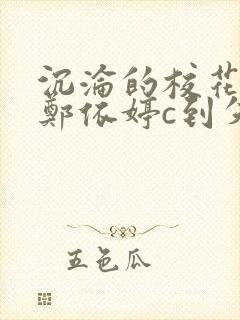 沉沦的校花
郑依婷c到
五色瓜